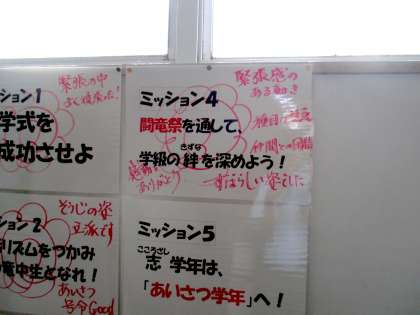 ッション1
学式を
成功させよ
緊張の中
ミッション4
闘竜祭を通して、
学級の絆を深めよう！
きずな
緊張感の
ある動き
仲間との
感動を
ありがとう
すばらしい姿でした
ッション2
リズムをつかみ
竜中生となれ！
そうじの姿
立派です
あいさつ
号令Good
ミッション5
こころざし
志 学年は、
「あいさつ学年」へ！